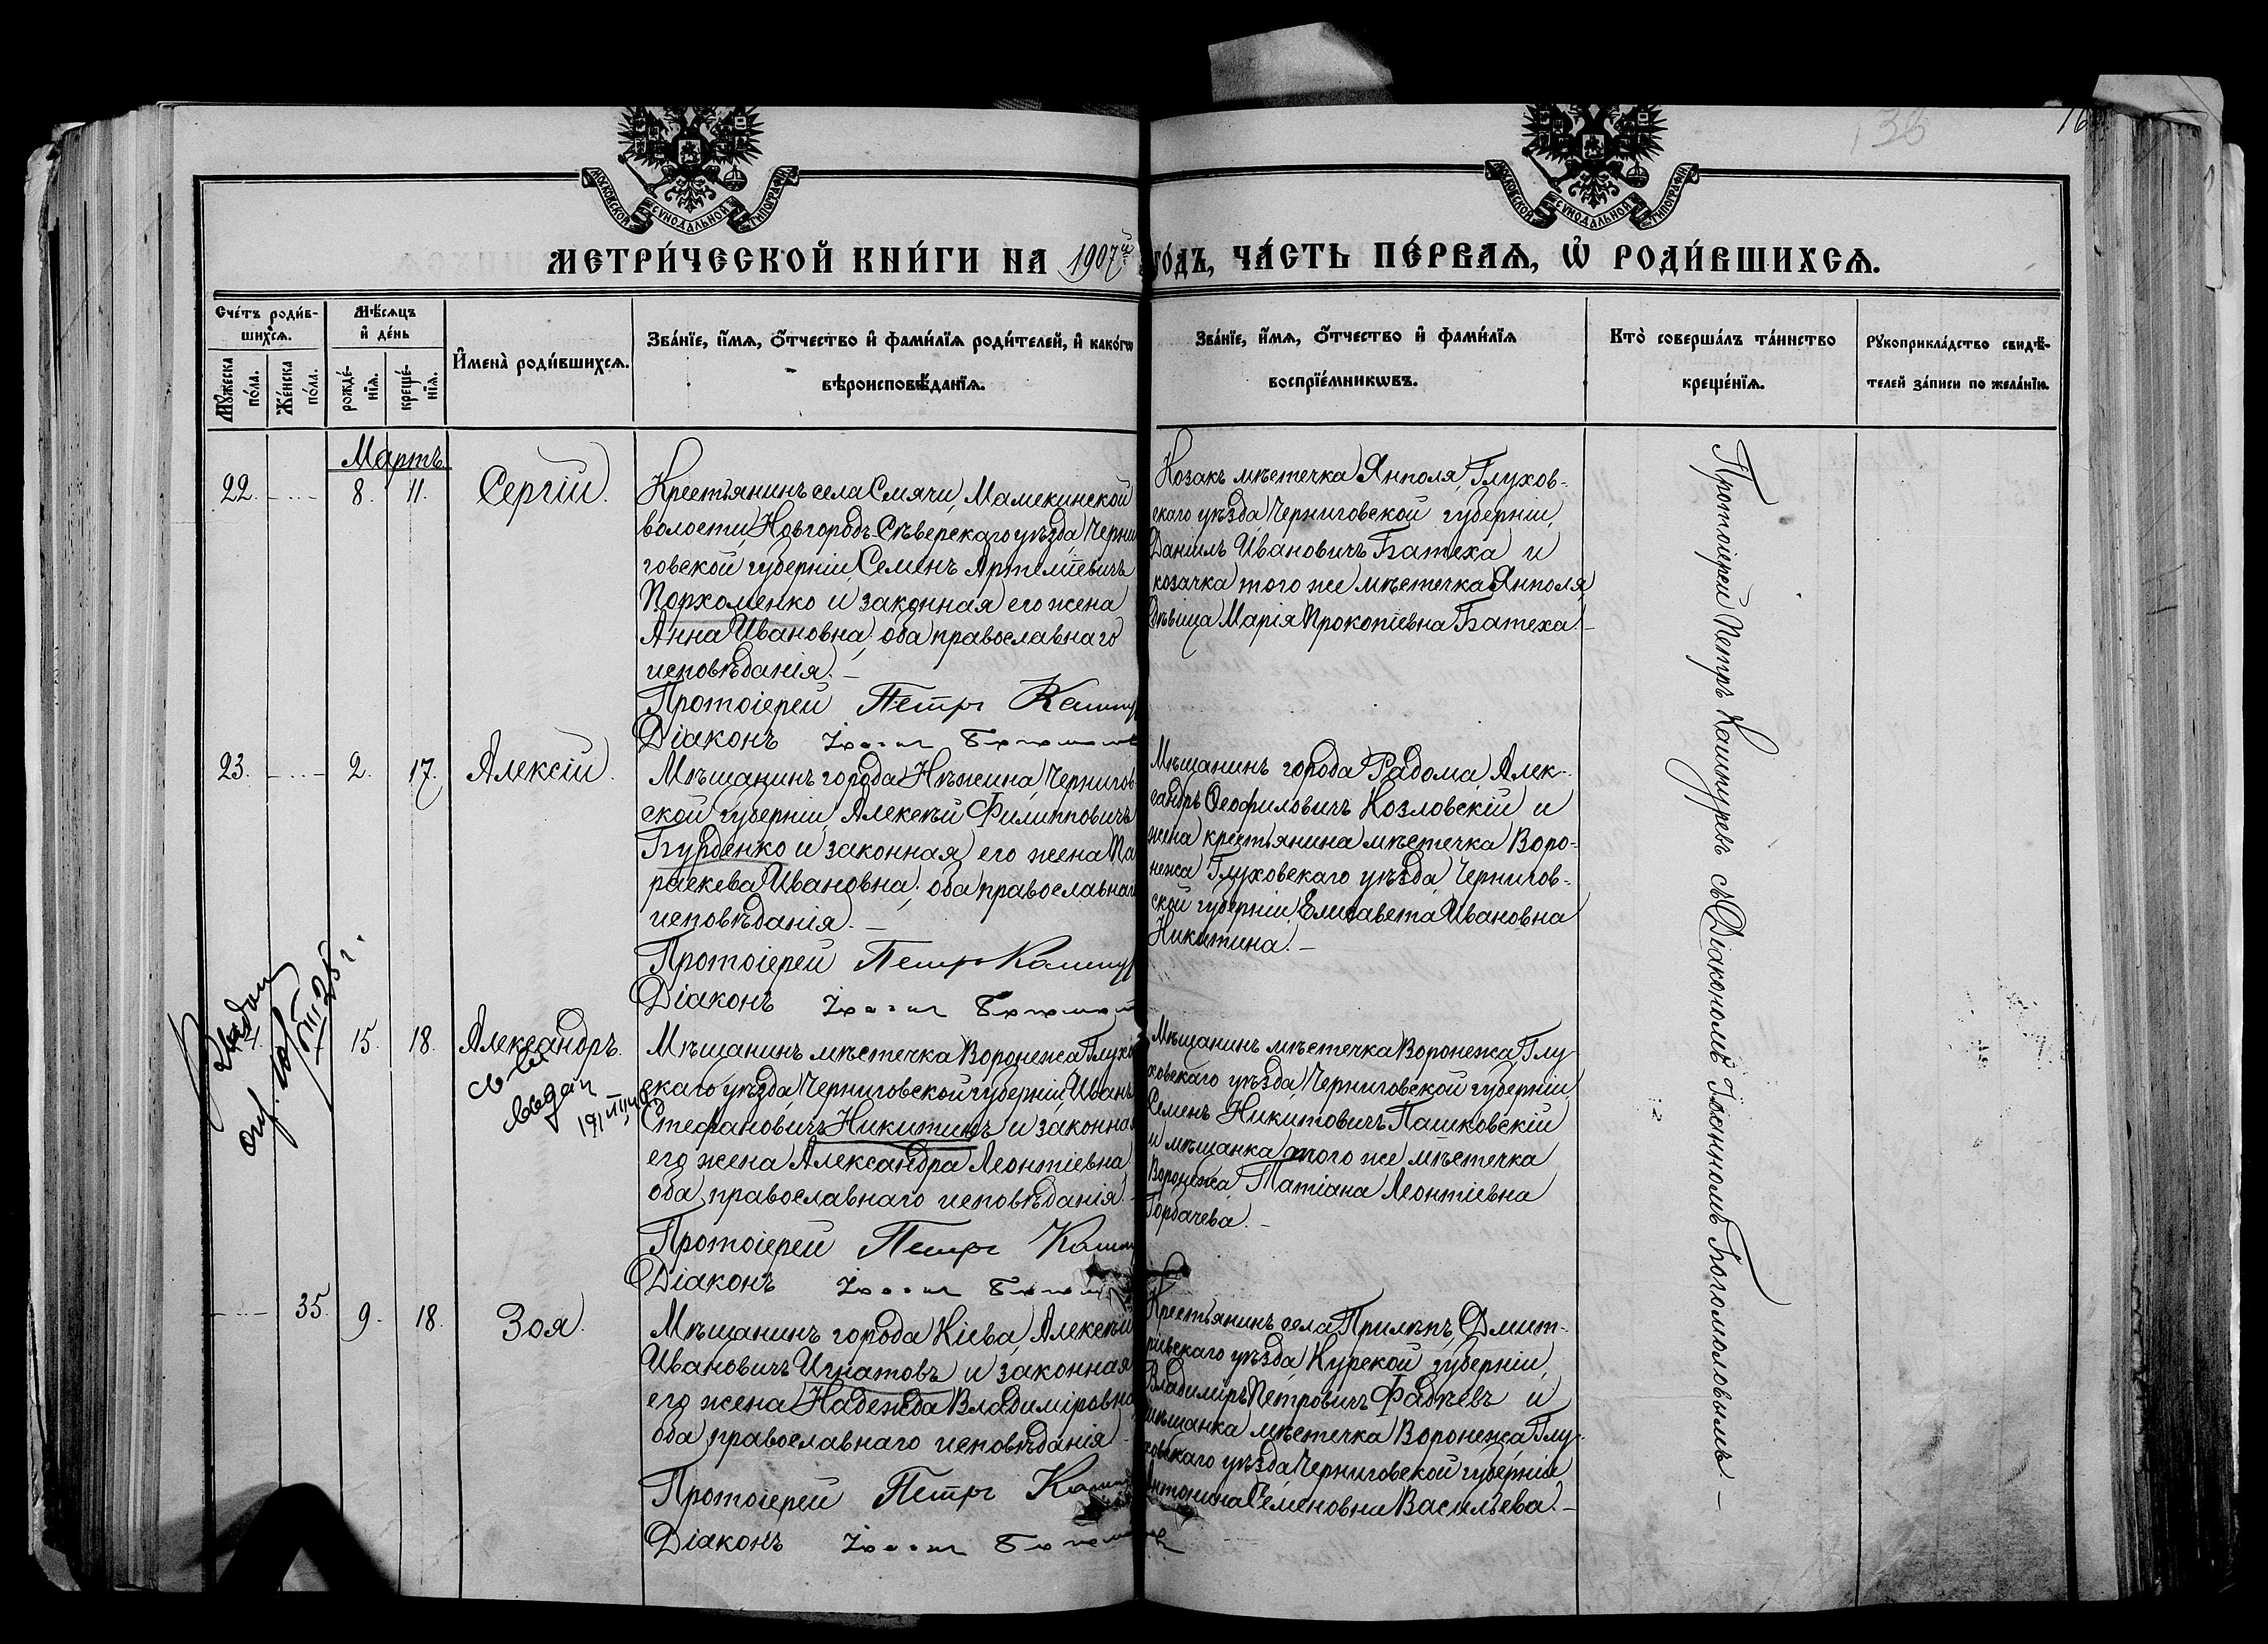 136
МОСКОВСКОЙ СѴНОДАЛЬНОЙ ТИПОГРАФІИ
МОСКОВСКОЙ СѴНОДАЛЬНОЙ ТИПОГРАФІИ
МЕТРИ́ЧЕСКОЙ КНИ́ГИ НА 1907й ГО́ДЪ, ЧА́СТЬ ПЕ́РВАѦ, Ѡ҆ РОДИ́ВШИХСѦ.
Сче́тъ роди́в-
шихсѧ.
Мꙋ́жеска по́ла.
Же́нска по́ла.
Мѣ́сѧцъ
и҆ де́нь
рожде́-
нїѧ.
креще́-
нїѧ.
И҆мена̀ роди́вшихсѧ.
Зва́нїе, и҆́мѧ, ѻ҆́тчество и҆ фами́лїѧ роди́телей, и҆ како́гѡ
вѣроисповѣ́данїѧ.
Зва́нїе, и҆́мѧ, ѻ҆́тчество и҆ фами́лїѧ
воспрїе́мникѡвъ.
Кто̀ соверша́лъ та́инство
креще́нїѧ.
Рꙋкоприкла́дство свидѣ́-
телей за́писи по жела́нїю.
Мартъ
22. 8. 11. Сергій.
Крестьянинъ села Смячи, Мамекинской
волости, Новгородъ-Сѣверскаго уѣзда, Черни
говской губерніи, Семенъ Артеміевичъ
Пархоменко и законная его жена
Анна Ивановна; оба православнаго
исповѣданія. –
Протоіерей Петръ
Діаконъ
Козакъ мѣстечка Янполя, Глухов-
скаго уѣзда, Черниговской губерніи,
Даніилъ Ивановичъ Батеха и
козачка того же мѣстечка Янполя
дѣвица Марія Прокопіевна Батеха. –
23. 2. 17. Алексій.
Мѣщанинъ города Нѣжина, Чернигов-
ской губерніи, Алексѣй Филипповичъ
Бурденко и законная его жена Па
раскева Ивановна; оба православнаго
исповѣданія. –
Протоіерей Петръ
Діаконъ
Мѣщанинъ города Радома, Алек-
сандръ Ѳеофиловичъ Козловскій и
жена крестьянина мѣстечка Воро-
нежа Глуховскаго уѣзда, Чернигов-
ской губерніи, Елисавета Ивановна
Никитина. –
15. 18. Александръ.
Мѣщанинъ мѣстечка Воронежа, Глухо
скаго уѣзда, Черниговской губерніи, Иванъ
Стефановичъ Никитинъ и законная
его жена Александра Леонтіевна,
оба православнаго исповѣданія. –
Протоіерей Петръ
Діаконъ
Мѣщанинъ мѣстечка Воронежа, Глу-
ховскаго уѣзда, Черниговской губерніи,
Семенъ Никитовичъ Пашковскій
и мѣщанка того же мѣстечка
Воронежа, Татіана Леонтіевна
Горбачева. –
35. 9. 18. Зоя.
Мѣщанинъ города Кіева, Алексѣй
Ивановичъ Игнатовъ и законная
его жена Надежда Владиміровна,
оба православнаго исповѣданія. –
Протоіерей Петръ
Діаконъ
Крестьянинъ села Прилѣпъ, Дмит-
ріевскаго уѣзда, Курской губерніи,
Владиміръ Петровичъ Фадѣевъ и
мѣщанка мѣстечка Воронежа, Глу-
ховскаго уѣзда, Черниговской губерніи
Антонина Семеновна Васильева. –
Протоіерей Петръ Кашпуревъ съ Діакономъ Іоанномъ Богомоловымъ. –